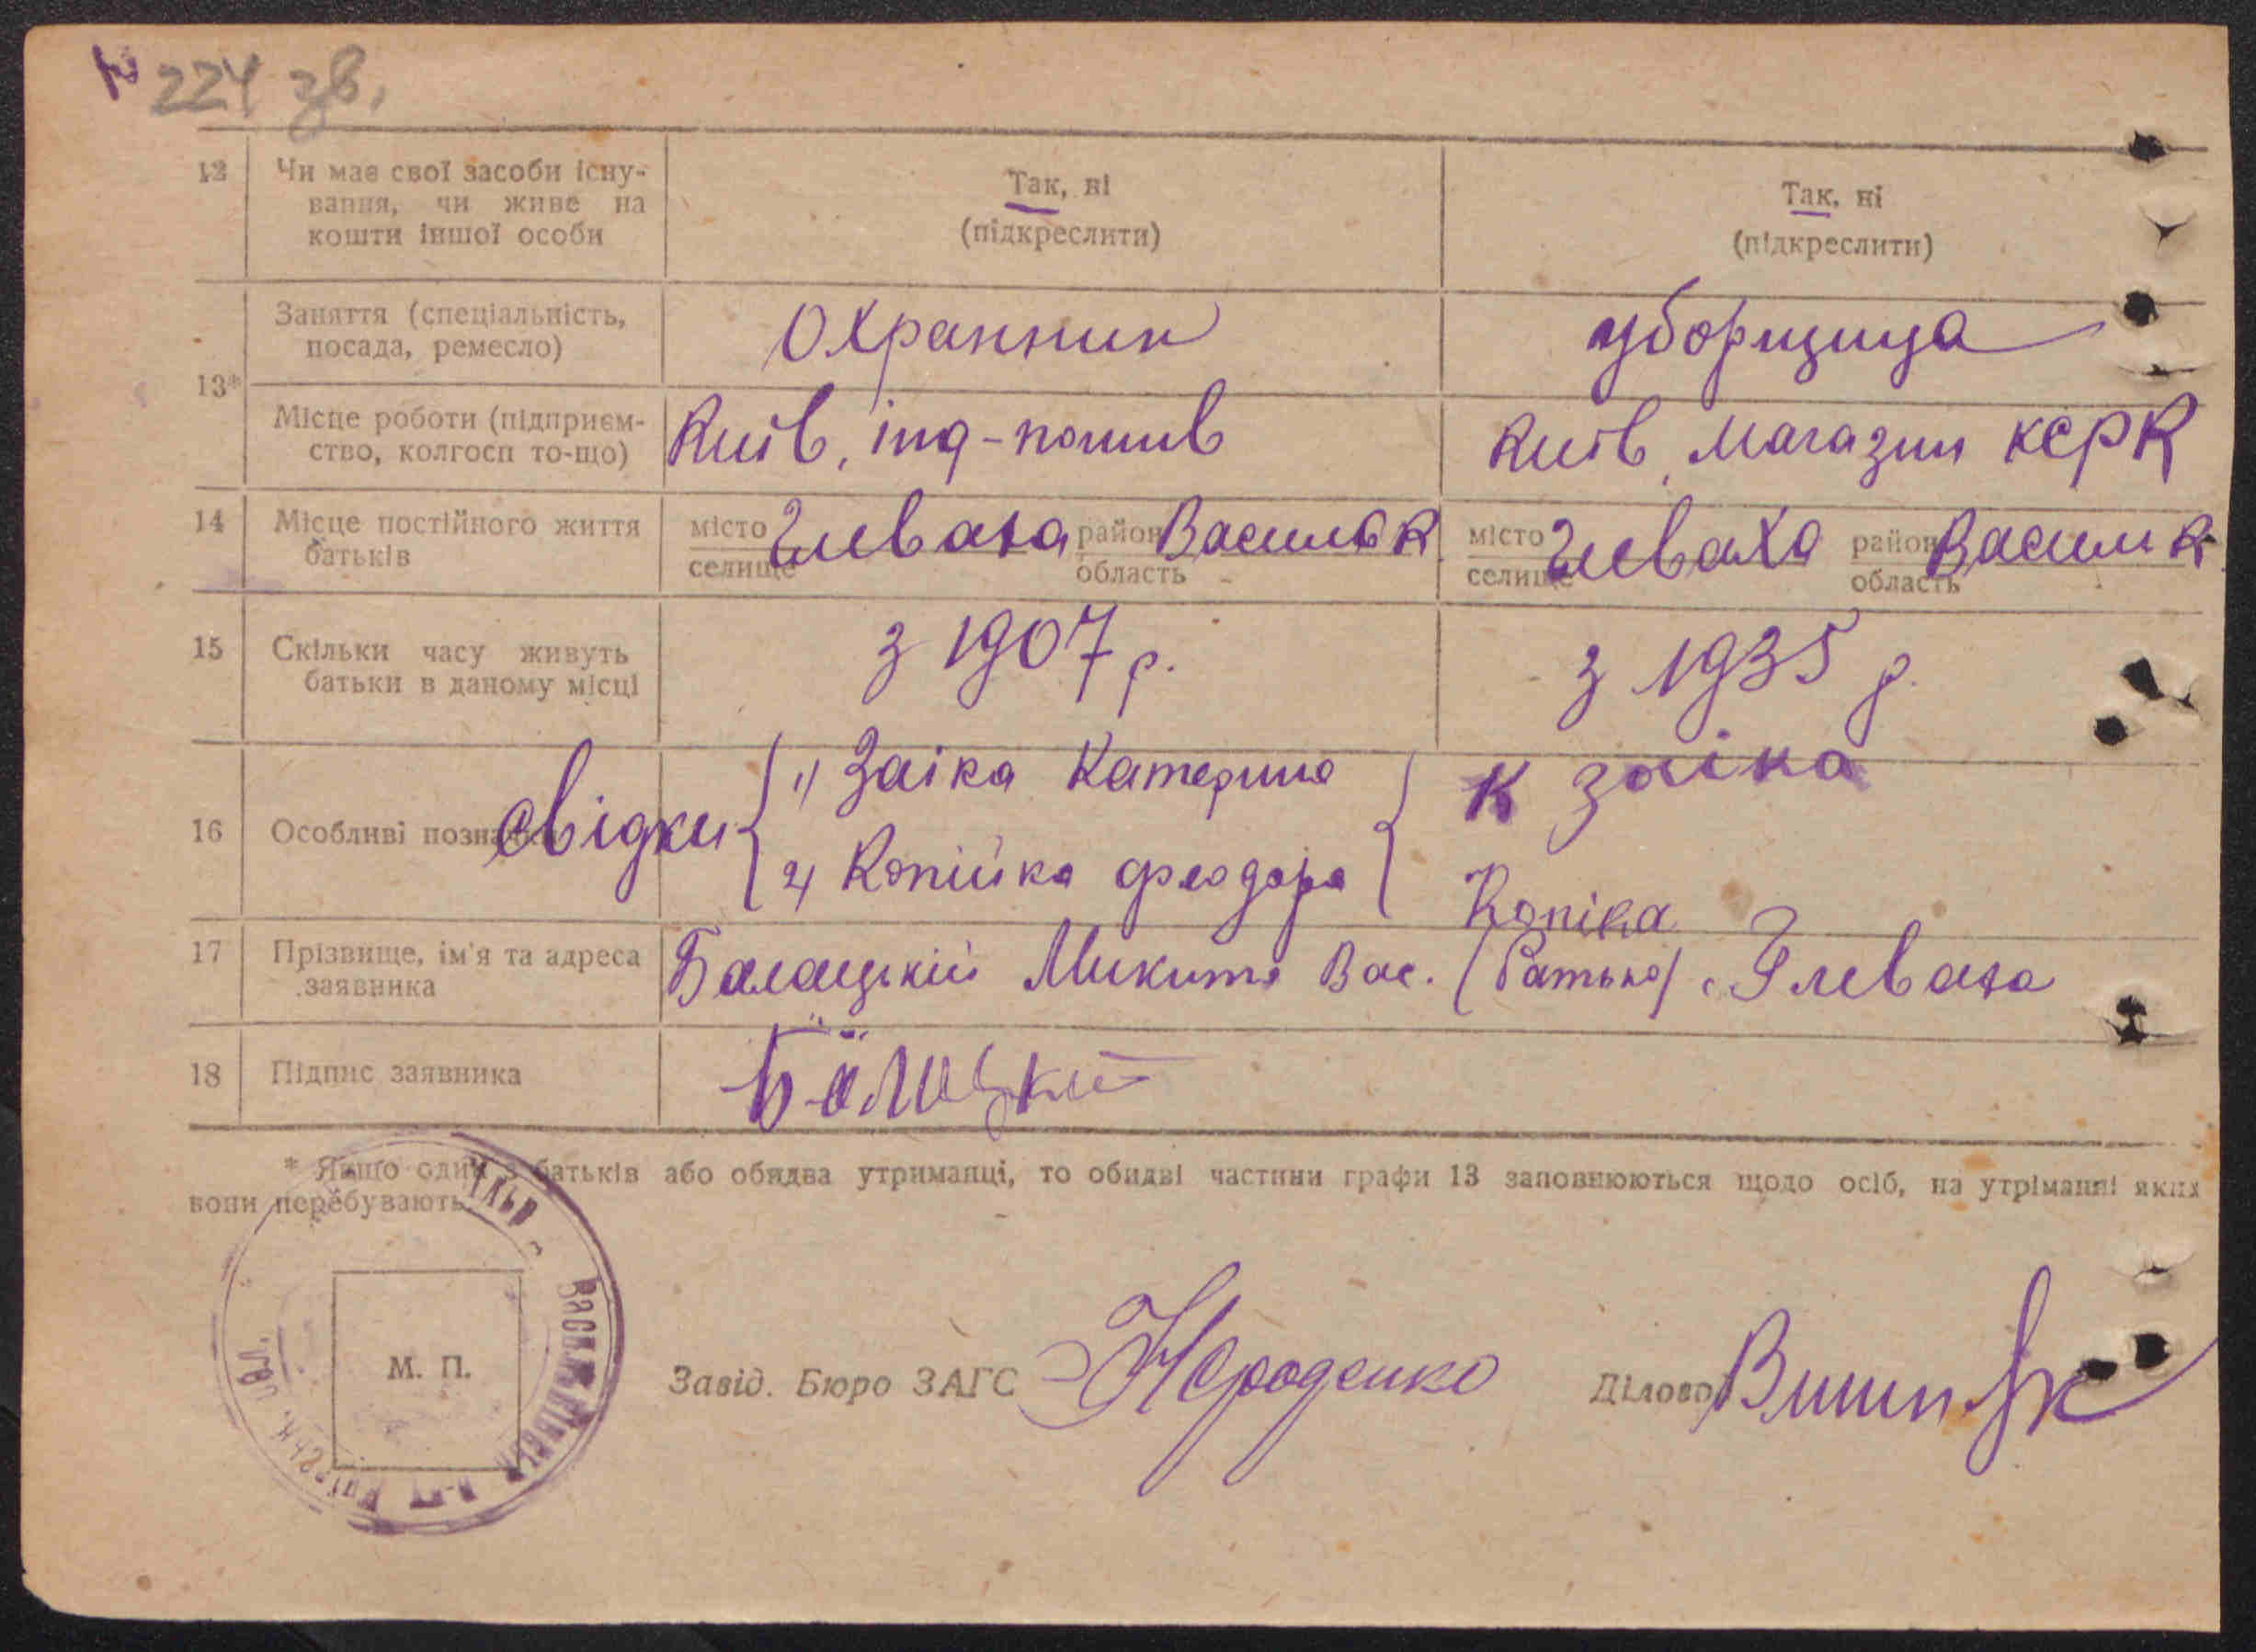 № 224 зв.
12 Чи має свої засоби існу-
вання, чи живе на
кошти іншої особи
Так, ні
(підкреслити)
Так, ні
(підкреслити)
13*
Заняття (спеціальність,
посада, ремесло)
Охранник
уборщица
Місце роботи (підприєм-
ство, колгосп то-що)
Київ, інд-пошив
Київ, магазин
14 Місце постійного життя
батьків
місто
селище
Глеваха
район
область
Васильк
місто
селище
Глеваха
район
область
Васильк
15 Скільки часу живуть
батьки в даному місці
з 1907 р.
з 1935 р.
16 Особливі позначки
свідки
1) Заіка Катерина
2) Копійка Феодора
К Заіка
Копіка
17 Прізвище, ім'я та адреса
заявника
Балацькій Микита Вас. (батько) с. Глеваха
18 Підпис заявника
* Якщо один з батьків або обидва утриманці, то обидві частини графи 13 заповнюються щодо осіб, на утріманні яких
вони перебувають.
М. П.
Завід. Бюро ЗАГС
Діловод